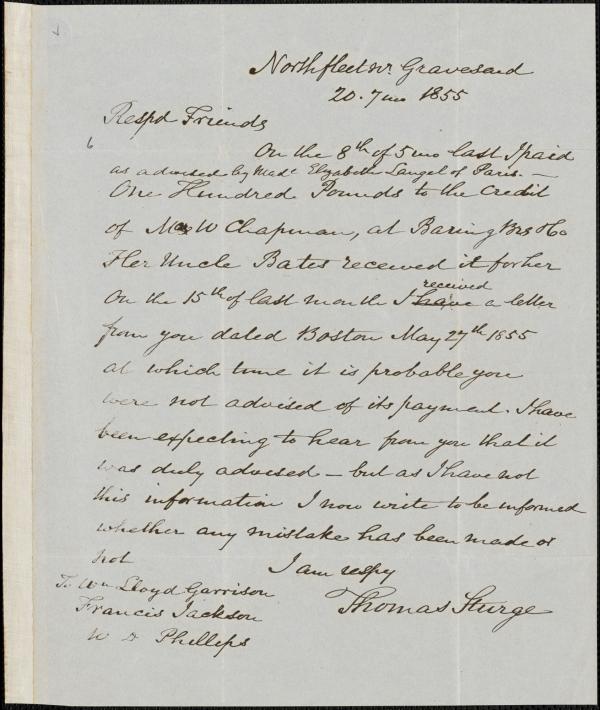 Northfleet nr. Gravesend
20. 7 mo 1855
Respd Friends
6
On the 8th of 5 mo last I paid
as advised by Madc Elizabeth Laugel of Paris. —
One Hundred Pounds to the Credit
of M W Chapman, at Baring Brs & Co
Her Uncle Bates received it for her
On the 15th of last month I have received a letter
from you dated Boston May 27th 1855
at which time it is probable you
were not advised of its payment. I have
been expecting to hear from you that it
was duly advised — but as I have not
this information I now write to be informed
whether any mistake has been made or
not
I am respy
Thomas Sturge
To Wm Lloyd Garrison
Francis Jackson
W Phillips